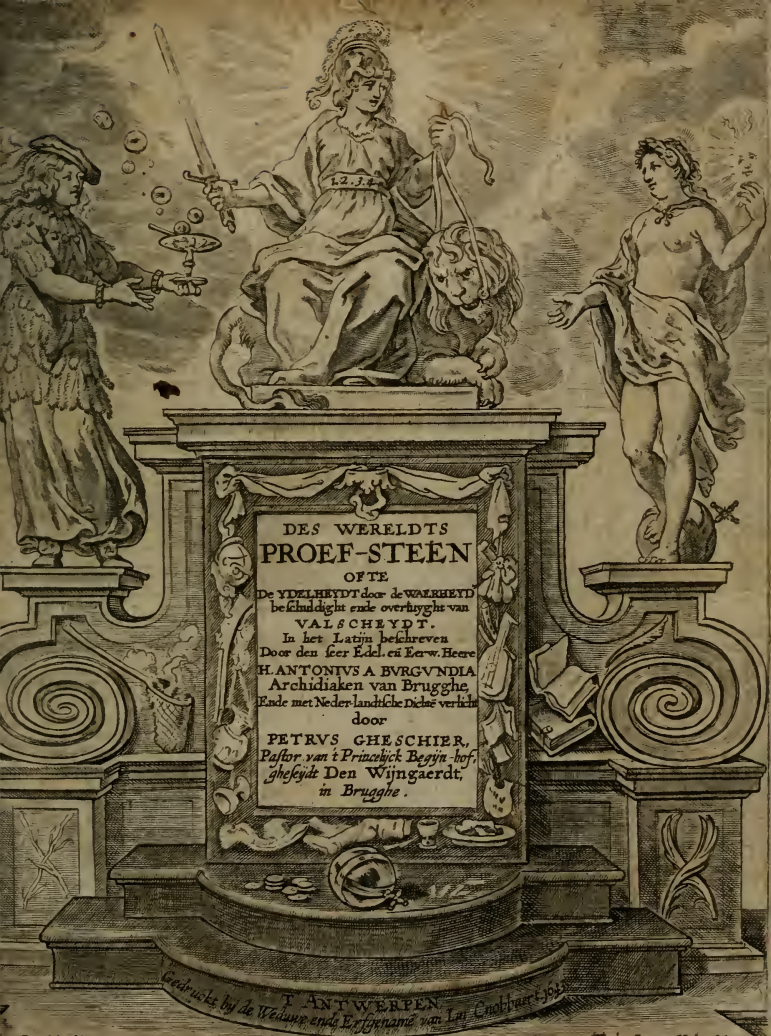 1.2.3.4
DES WERELDTS
PROEF-STEEN
OFTE
De YDELHEYDT door de WAERHEYD
beschuldight ende overtuyght van
VALSCHEYDT.
In het Latijn beschreven
Door den seer Edel. eñ Eerw. Heere
H. ANTONIVS A BVRGVNDIA
Archidiaken van Brugghe,
Ende met Neder-landtsche Dichtē verlicht
door
PETRVS GHESCHIER,
Pastor van t Princelijck Begijn-hof,
gheseÿdt Den Wijngaerdt,
in Brugghe.
T ANTWERPEN
Gedruckt bij de Weduwe ende Erfgenamē van Ian Cnobbaert. 1643